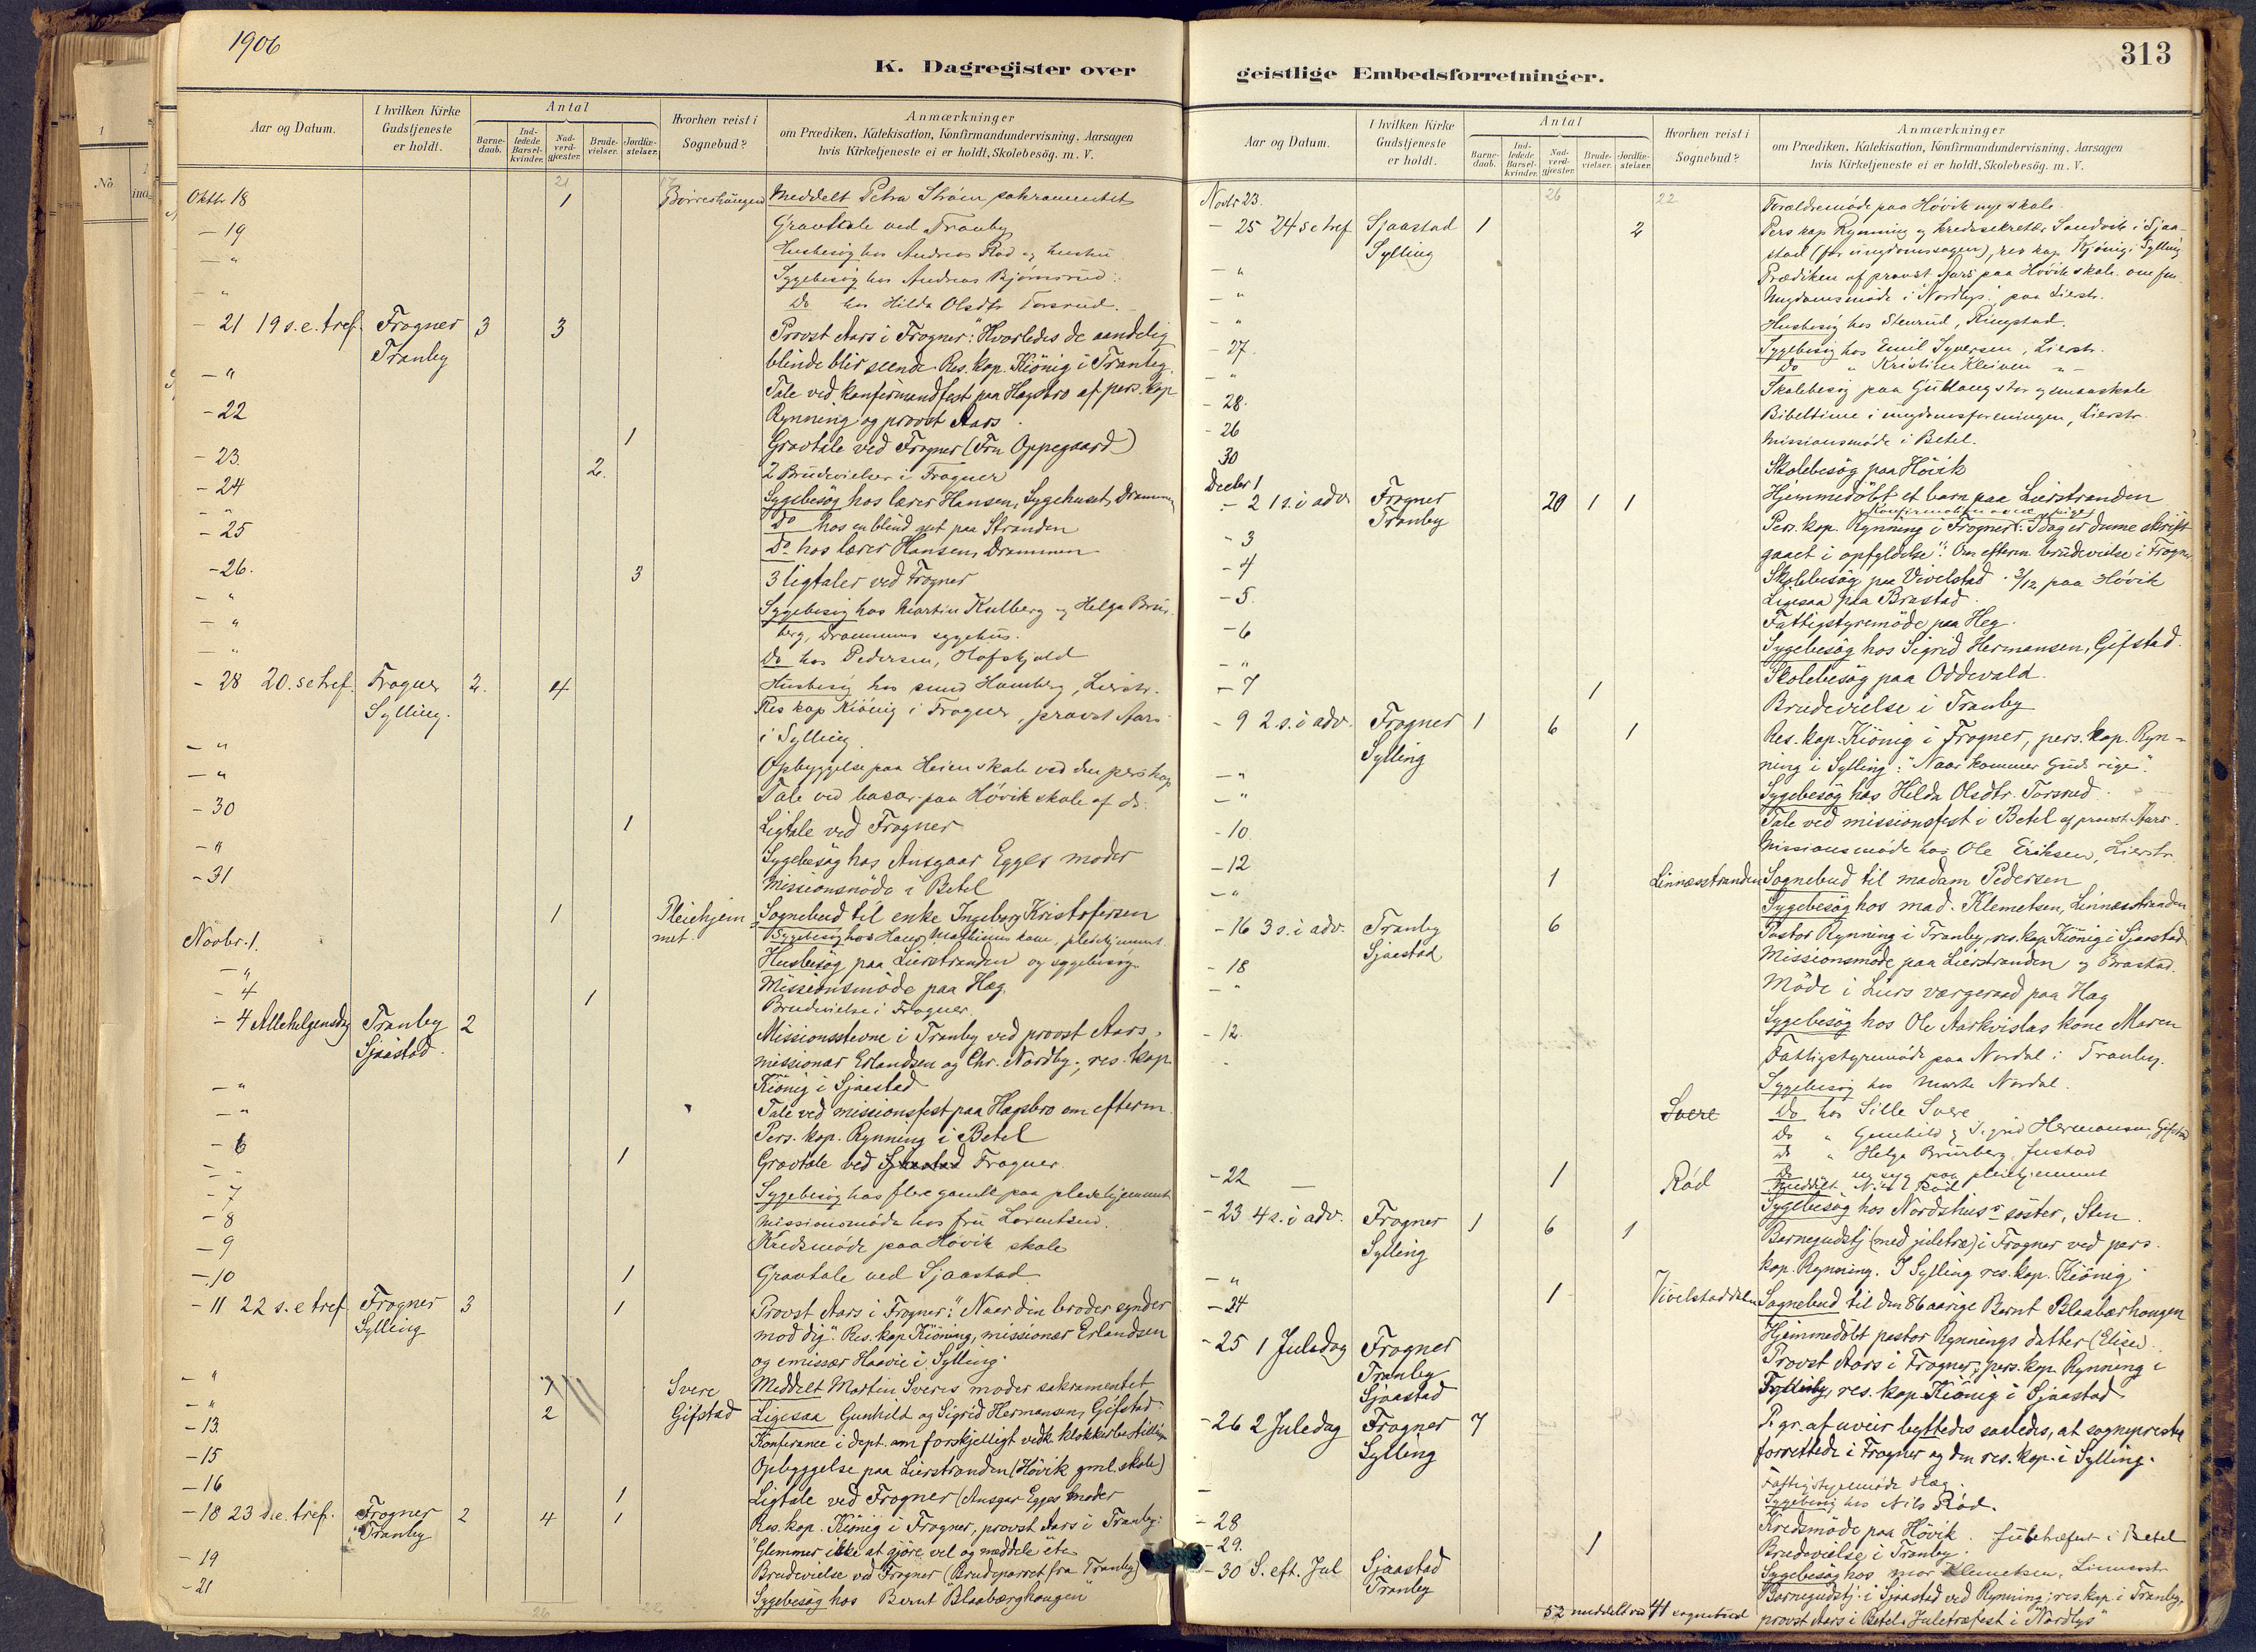 1906
K. Dagregister over
Aar og Datum.
I hvilken Kirke Gudstjeneste er holdt.
Antal
Barne-daab.
Ind-ledede Barsel-kvinder.
Nad-verd-gjæster.
Brude-vielser.
Jordfæ-stelser.
Hvorhen reist i Sognebud?
Anmærkninger
om Prædiken, Katekisation, Konfirmandundervisning, Aarsagen
hvis Kirketjeneste ei er holdt, Skolebesøg. m. V.
Oktbr 18 1 Meddelt Petra Strøm sakramentet
- 19 Gravtale ved Tranby
- " Husbesøg hos Andreas Rød og hustru
Sygebesøg hos Andreas Bjørnsrud
- " Do hos Hilda Olsdtr Torsrud.
- 21 19 s. e. tref. Frogner 3 3 Provst Aars i Frogner: "Hvorledes de aandelig
Tranby blinde blir seende. Res. kap. Kiönig i Tranby.
- " Tale ved konfirmandfest paa Hagsbro af pers. kap
- 22 Rynning og provst Aars
1 Gravtale ved Frogner (Fru Oppegaard)
- 23. 2. 2 Brudevielser i Frogner
- 24 Sygebesøg hos lærer Hansen, Sygehuset, Drammen
- " Do hos en blind gut paa Stranden
- 25 Do hos lærer Hansen, Drammen
- 26. 3 3 ligtaler ved Frogner
- " Sygebesøg hos Martin Kulberg og Helga Brus-
- " berg, Drammens sygehus.
- " Do hos Pedersen,
- 28 20. s e tref. Frogner 2. 4 Husbesøg hos
Sylling. Res kap Kiönig i Frogner, provst Aars
i Sylling.
- " Opbyggelse paa Heien skole ved den pers kap
- " Tale ved basar paa Høvik skole af do.
- 30 1 Ligtale ved Frogner
- " Sygebesøg hos Ansgaar Egges moder
- 31 Missionsmøde i Betel
1 Pleiehjem Sognebud til enke Ingeborg Kristofersen
met.
Novbr. 1. Husbesøg paa Lierstranden og sygebesøg
- " Missionsmøde paa Hæg.
- 4 1 Brudevielse i Frogner.
- 4 Allehelgensdag Tranby 2 Missionsstevne i Tranby ved provst Aars,
Sjaastad. missionær Erlandsen og Chr. Nordby; res. kap
Kiönig i Sjaastad
- " Tale ved missionsfest paa Hagsbro om efterm.
- " Pers. kap. Rynning i Betel
- 6 1 Gravtale ved Sjaastad Frogner
- " Sygebesøg hos flere gamle paa pleiehjemmet
- 7 Missionsmøde hos fru Lorentsen.
- 8 Kredsmøde paa Høvik skole
- 9
- 10 1 Gravtale ved Sjaastad
- 11 22 s. e tref Frogner 3 1 Provst Aars i Frogner: "Naar din broder synder
Sylling mod dig". Res. kap Kiöning, missionær Erlandsen
og emissær Haavie i Sylling.
- " Svere Meddelt Martin Sveres moder sakramentet
- " 2 Gifstad Ligesaa Gunhild og Sigrid Hermansen, Gifstad
- 13. Konferance i dept. om forskjelligt vedk. klokkerbestilling
- 15 Opbyggelse paa Lierstranden (Høvik gml. skole)
- 16 1 Ligtale ved Frogner (Ansgar Egges moder
- 18 23 s. e. tref. Frogner 2 4 1 Res. kap. Kiönig i Frogner, provst Aars i Tranby:
Tranby "Glemmer ikke at gjøre vel og meddele" etc
- 19 Brudevielse ved Frogner (Brudeparret fra Tranby)
- 21 Sygebesøg hos Bernt "Blaabærghaugen"
geistlige Embedsforretninger.
313
Aar og Datum.
I hvilken Kirke Gudstjeneste er holdt.
Antal
Barne-daab.
Ind-ledede Barsel-kvinder.
Nad-verd-gjæster.
Brude-vielser.
Jordfæ-stelser.
Hvorhen reist i Sognebud?
Anmærkninger
om Prædiken, Katekisation, Konfirmandundervisning, Aarsagen
hvis Kirketjeneste ei er holdt, Skolebesøg. m. V.
Novbr 23. 26 22 Forældremøde paa Høvik nye skole.
- 25 24 s e tref Sjaastad 1 2 Pers kap Rynning og kredssekretær Sandvik i Sjaa-
Sylling stad (for ungdomssagen), res kap Kiönig i Sylling
- " Prædiken af provst Aars paa Høvik skole
- " Ungdomsmøde i "Nordlys" paa Lierstr.
- " Husbesøg hos Stenrud, Ringstad.
- 27. Sygebesøg hos Emil Syversen, Lierstr.
- " Do " Kristine Kleiven "
- 28. Skolebesøg paa Gullaug stor og smaaskole
- 26 Bibeltime i ungdomsforeningen, Lierstr.
30 Missionsmøde i Betel.
Skolebesøg paa Høvik
Decbr 1 Hjemmedøbt et barn paa Lierstranden
- 2 1 s. i adv Frogner 20 1 1 Pers. kap. Rynning i Frogner: "Idag er denne skrift
Tranby gaaet i opfyldelse". Om efterm. brudevielse i Frogner
- 3
- 4 Skolebesøg paa Vivelstad. 3/12 paa Høvik
- 5. Ligesaa paa Brastad.
- 6 Fattigstyremøde paa Heg.
- " Sygebesøg hos Sigrid Hermansen, Gifstad.
- 7 Skolebesøg paa Oddevald.
1 Brudevielse i Tranby
- 9 2. s. i adv. Frogner 1 6 1 Res. kap. Kiönig i Frogner, pers. kap. Ryn-
Sylling ning i Sylling: "Naar kommer Guds rige".
- " Sygebesøg hos Hilda Olsdtr. Torsrud
- " Tale ved missionsfest i Betel af provst Aars.
- 10. Missionsmøde hos Ole Eriksen, Lierstr.
- 12 1 Linnæsstranden Sognebud til madam Pedersen
- " Sygebesøg hos mad. Klemetsen, Linnæsstranden
- 16 3 s. i adv. Tranby 6 Pastor Rynning i Tranby, res. kap Kiönig i Sjaastad
Sjaastad Missionsmøde paa Lierstranden og Brastad.
- 18 Møde i Liers værgeraad paa Hæg
- " Sygebesøg hos Ole Aarkvislas kone Maren
- 12. Fattigstyremøde paa Nordal i Tranby.
Sygebesøg hos Marte Nordal.
Svere Do hos Sille Svere
Do " Gunhild og Sigrid Hermansen, Gifstad
Do " Helga Brusberg, Justad
- 22 1 Rød Meddelt Nils Rød
Sygebesøg hos Nordshus's søster, Sten
- 23 4 s. i adv. Frogner 1 6 1 Barnegudstj (med juletræ) i Frogner ved pers.
Sylling kap. Rynning. I Sylling res. kap. Kiönig.
- "
- 24 1 Vivelstaddalen Sognebud til den 86 aarige Bernt Blaabærhaugen
Hjemmedøbt pastor Rynnings datter (Elise)
- 25 1 Juledag Frogner Provst Aars i Frogner, pers. kap. Rynning i
Tranby Tranby, res. kap. Kiönig i Sjaastad
Sjaastad
- 26 2 Juledag Frogner 7 P. gr. af uveir byttedes saaledes, at sognepresten
Sylling forrettede i Frogner og den res. kap. i Sylling.
Fattigstyremøde Hæg.
Sygebesøg hos Nils Rød.
- 28 Kredsmøde paa Høvik. Juletræfest i Betel
- 29. 1 Brudevielse i Tranby.
- 30 S. eft. Jul Sjaastad Sygebesøg hos mor Klemetsen, Linnæsstr
Tranby Barnegudstj. i Sjaastad ved Rynning; res. kap. i Tranby,
52 meddelt ved 41 sognebud provst Aars i Betel. Juletræfest i "Nordlys"